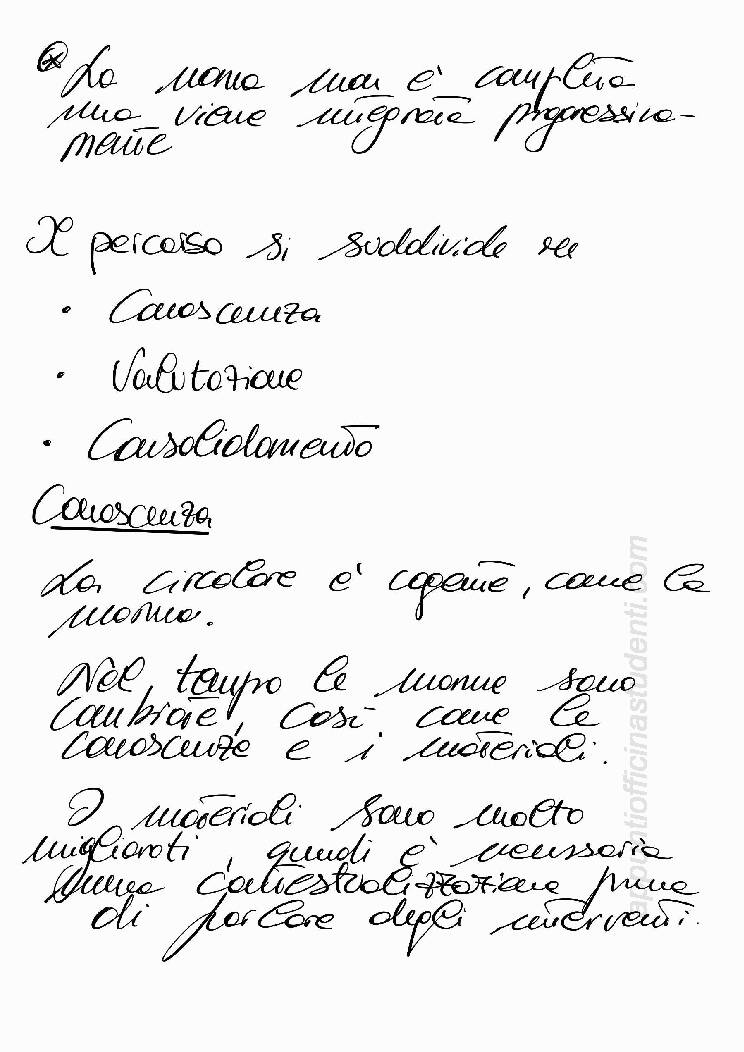 La norma non è completa
ma viene integrata progressiva-
mente
Il percorso si suddivide in
• Conoscenza
• Valutazione
• Consolidamento
Conoscenza
La circolare è cogente, come la
norma.
Nel tempo le norme sono
cambiate, così come le
conoscenze e i materiali.
I materiali sono molto
migliorati, quindi è necessaria
una contestualizzazione prima
di parlare degli interventi.
appuntiofficinastudenti.com